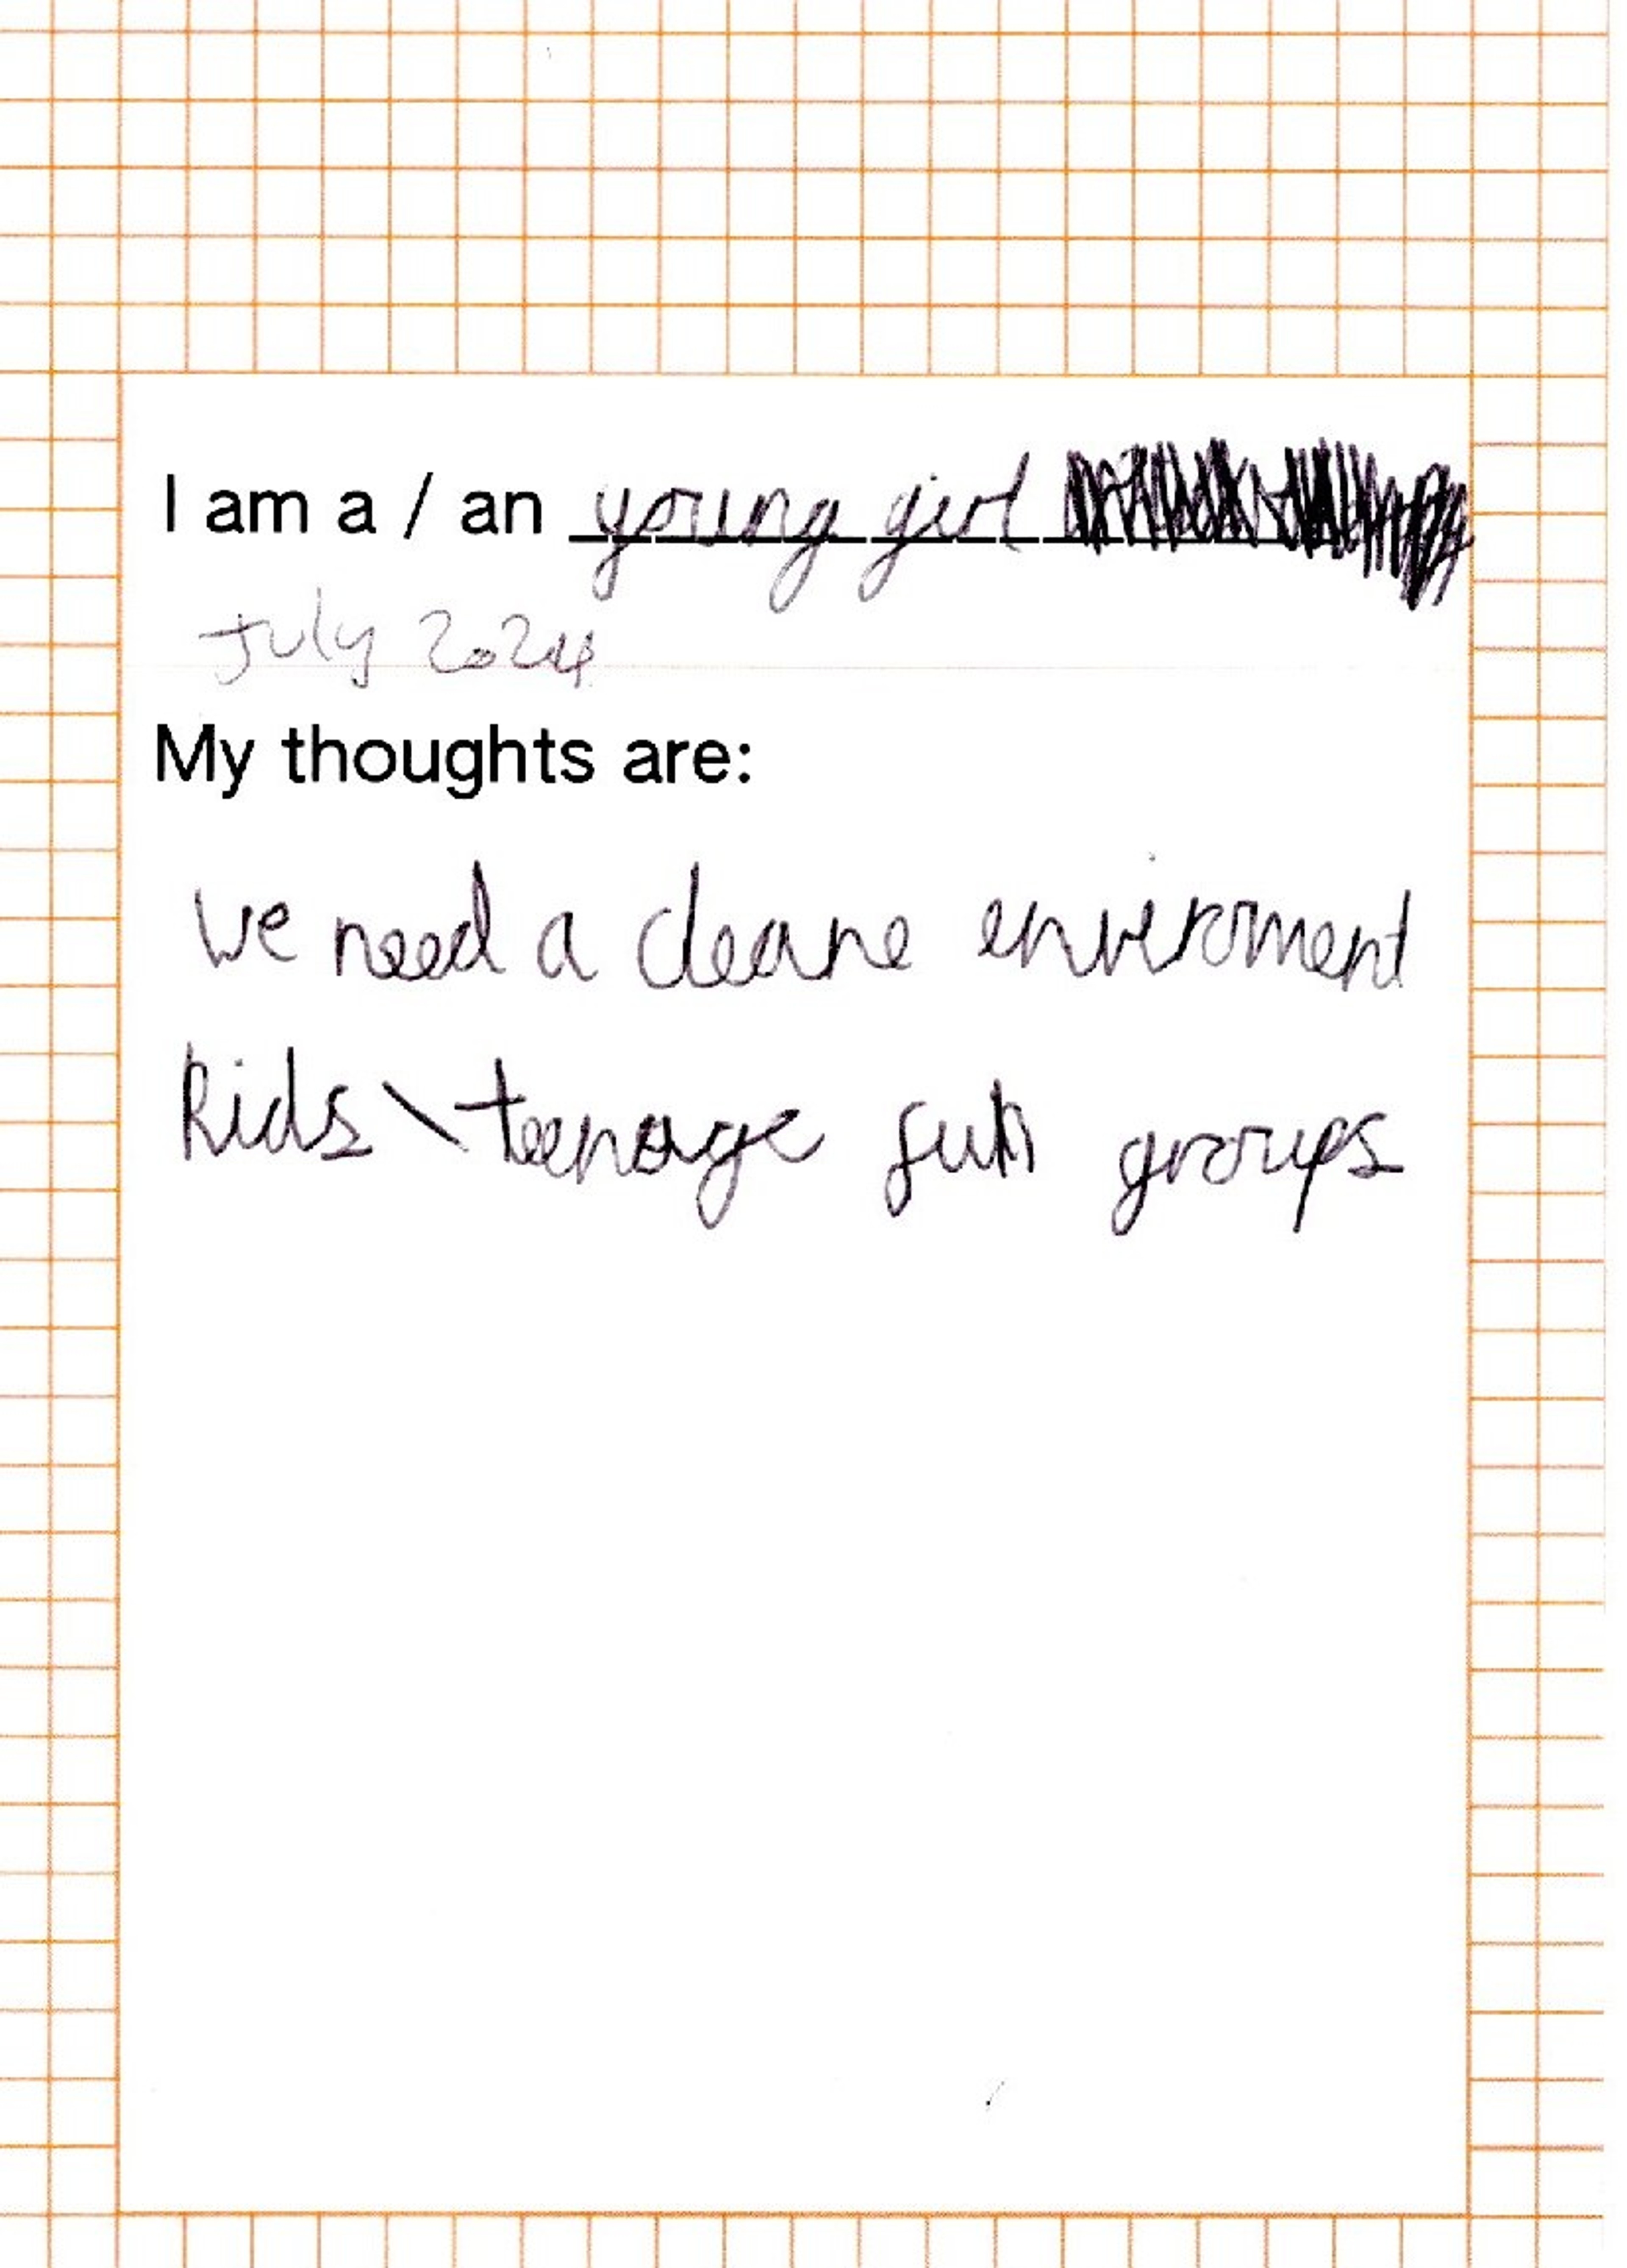 I am a / an young girl
July 2024
My thoughts are:
we need a cleane enviroment
Kids\teenage fun groups